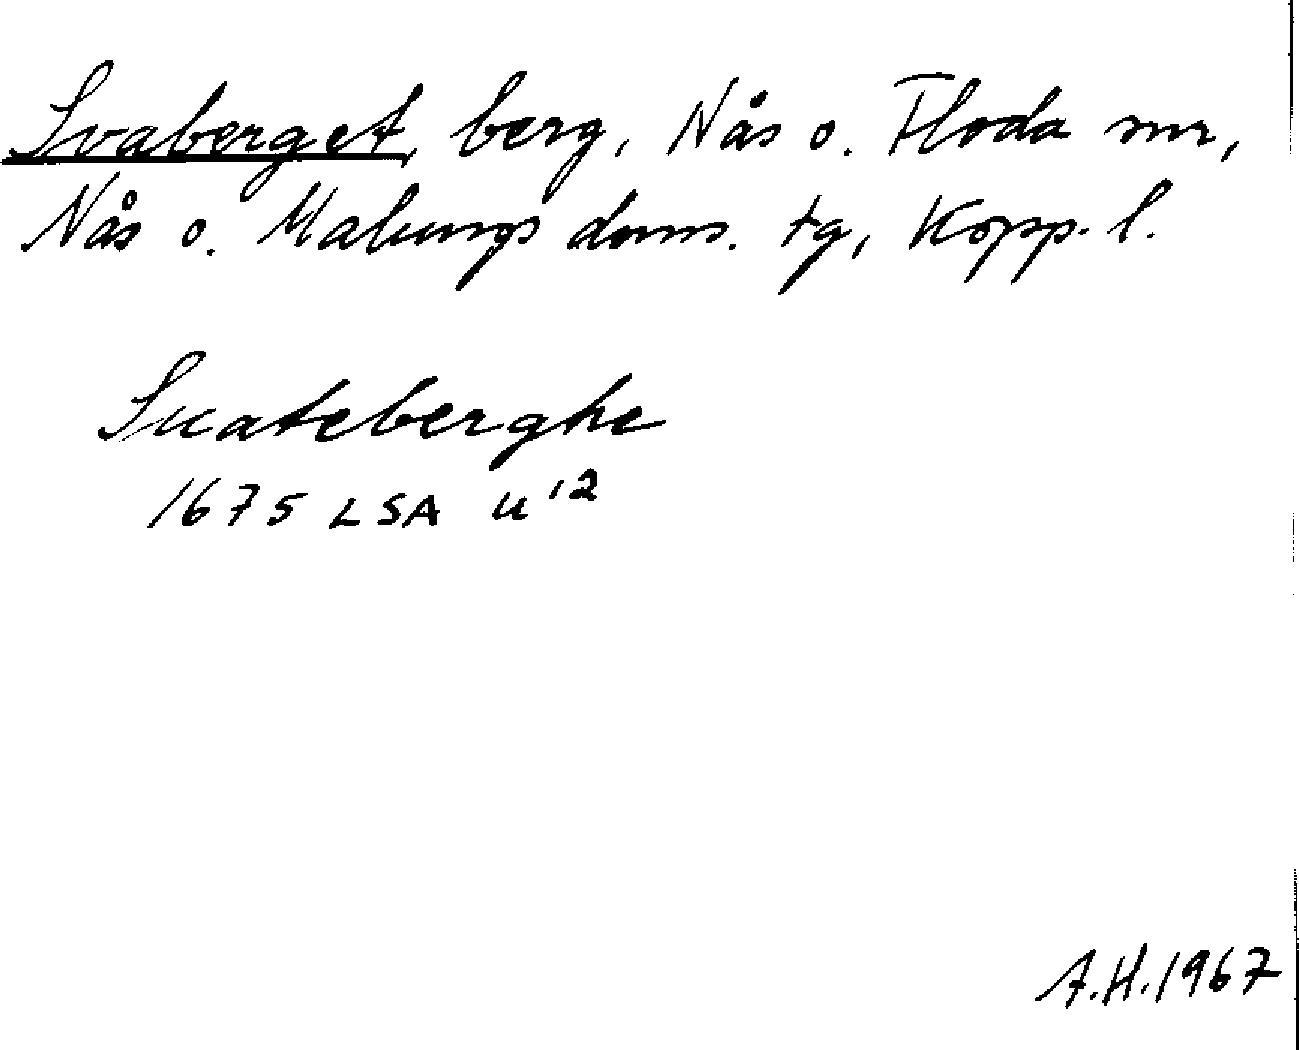 Svaberget, berg, Nås o. Floda snr,
Nås o. Malungs doms. tg, Kopp. l.
Suateberghe
1675 LSA U 12
A.H.1967